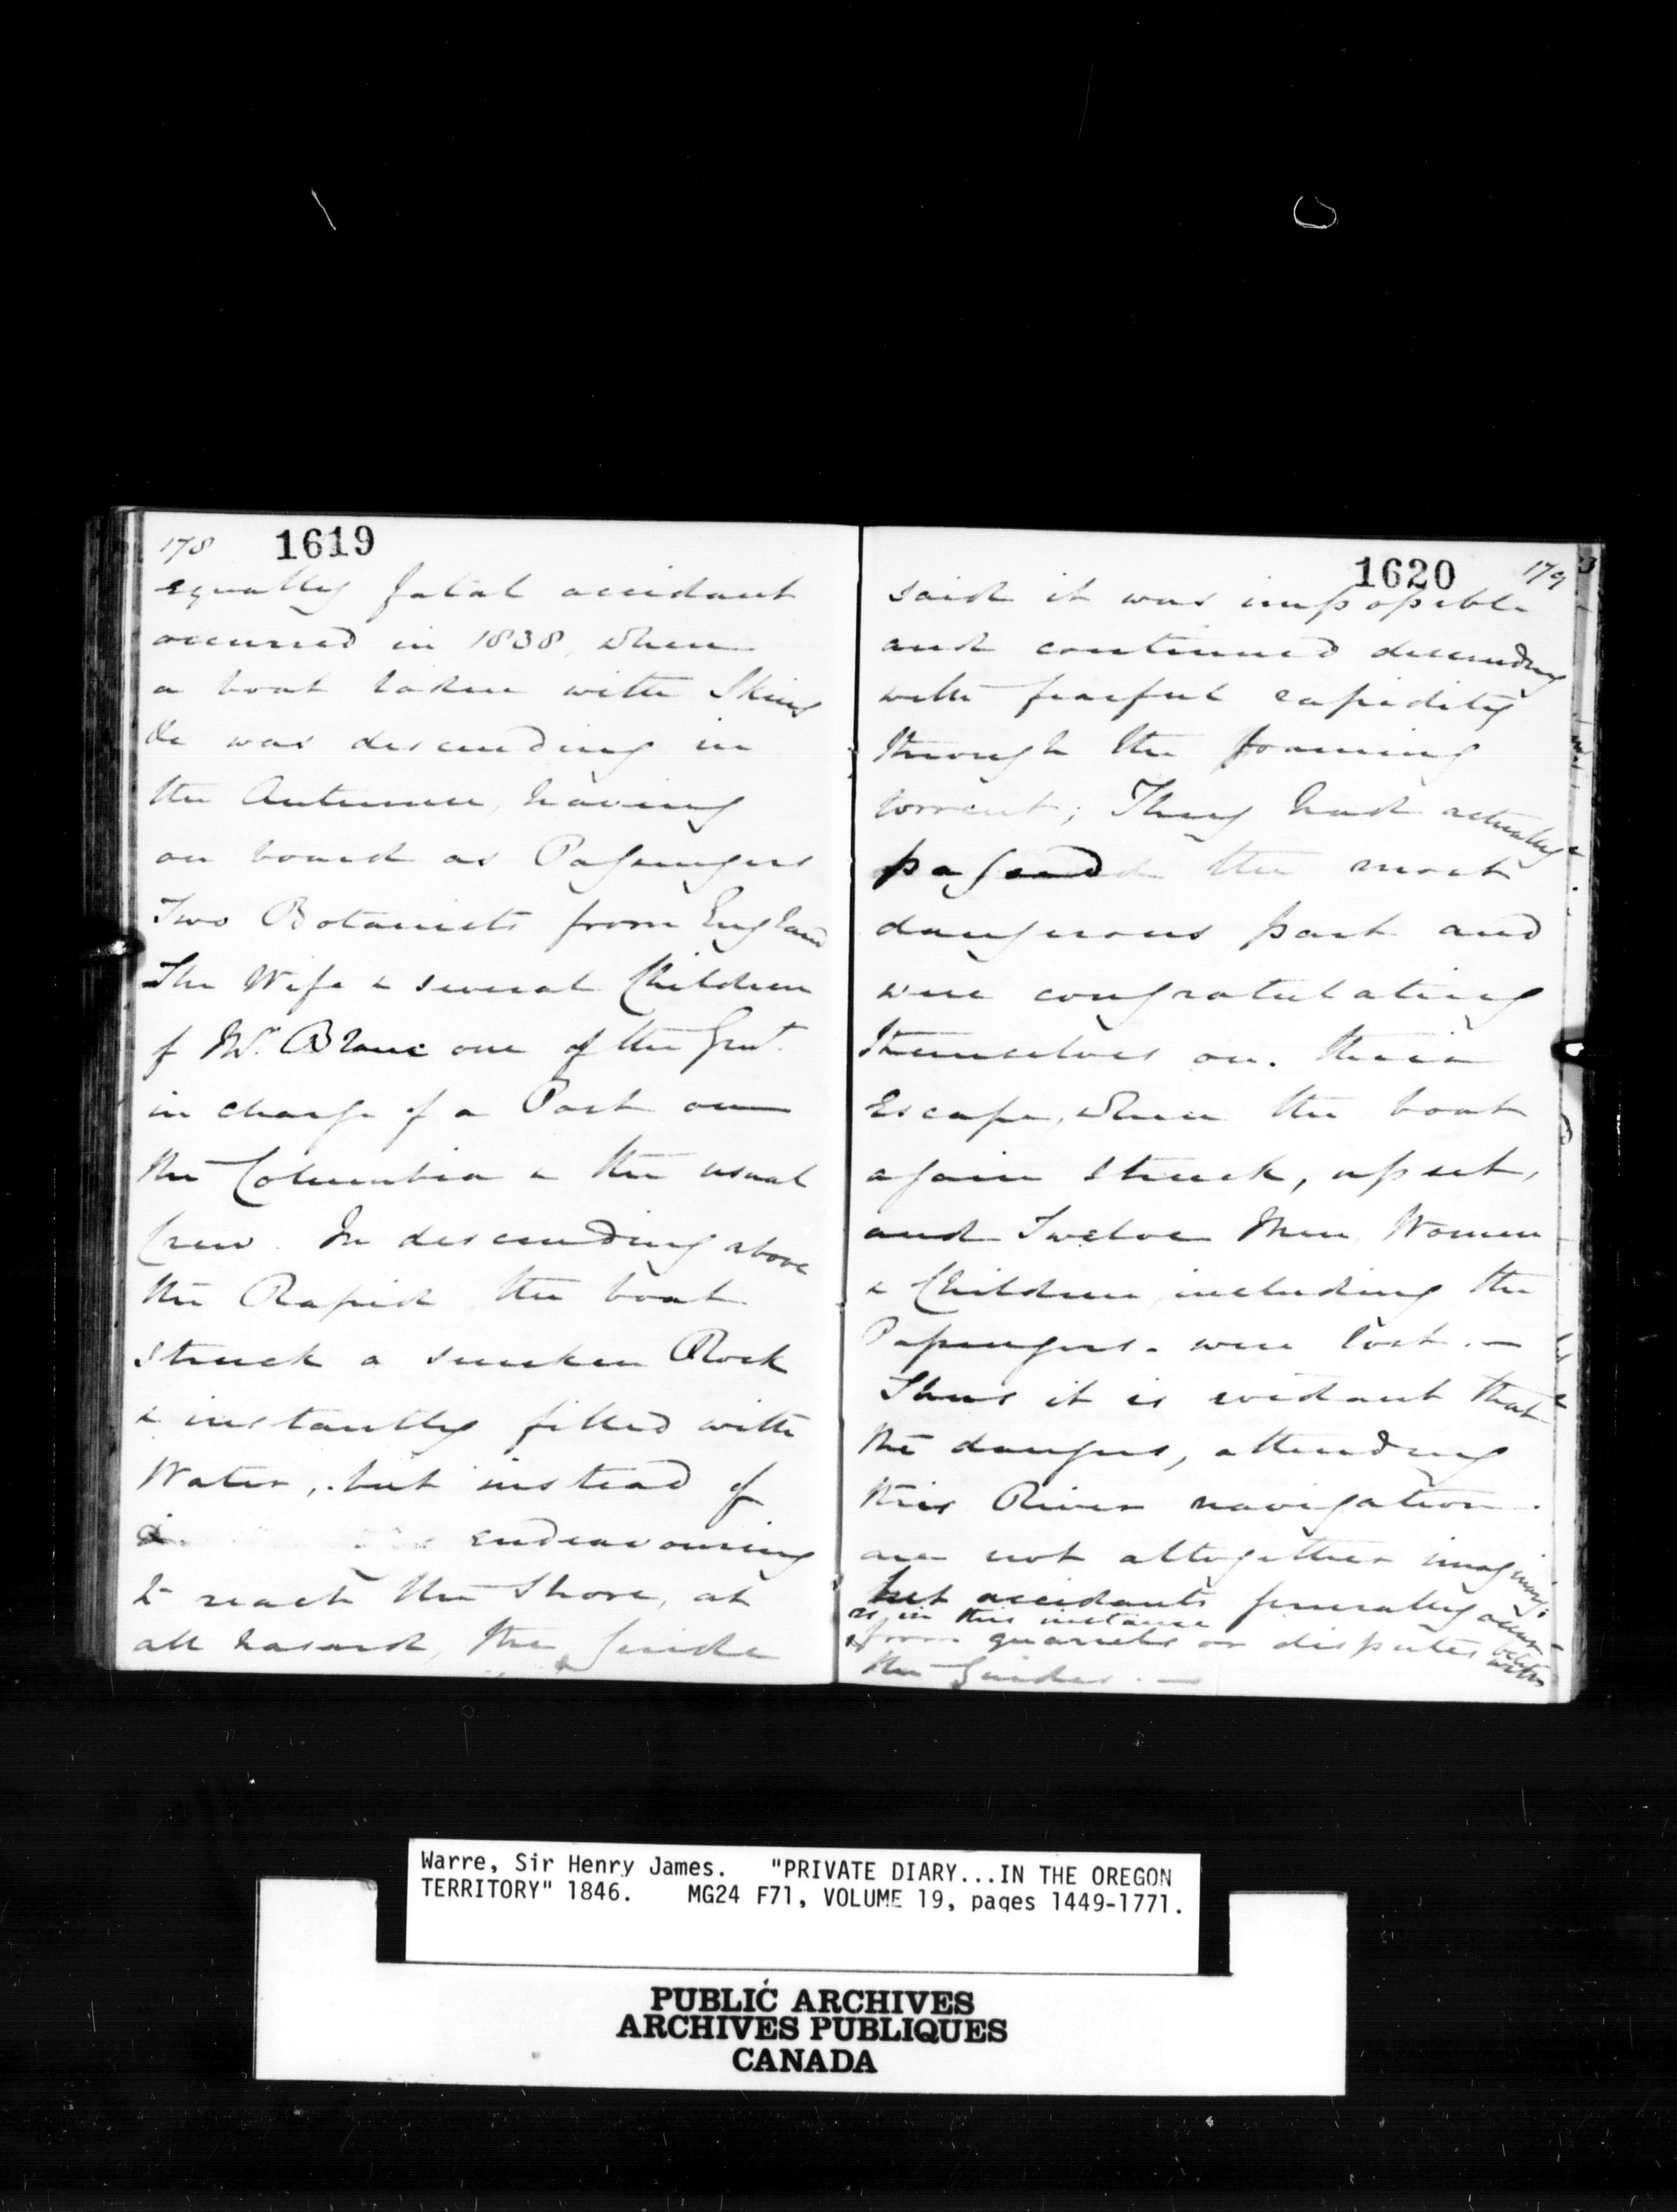 178 1619
equally fatal accidant
occurred in 1838, when
a boat laden with Skins
&c was descending in
the Autumn, having
on board as Passengers
Two Botanists from England
The Wife & several Children
of Mr. Blanc one of the Gent.
in charge of a Post on
the Columbia & the usual
Crew. In descending above
the Rapid the boat
struck a sunken Rock
& instantly filled with
Water, but instead of
endeavouring
to reach the Shore, at
all hasard, the Guide
1620 179
said it was impossible
and continued descending
with fearful rapidity
through the foaming
torrent; They had actually
passed the most
dangerous part and
were congratulating
themselves on their
Escape, when the boat
again struck, upset,
and Twelve Men, Women
& Children, including the
Passengers. were lost. —
Thus it is evidant that
the dangers, attending
this River navigation.
are not altogether imaginary;
but accidants generally occur
as in this instance
from quarrels or disputes with
the Guides. —
Warre, Sir Henry James. "PRIVATE DIARY...IN THE OREGON
TERRITORY" 1846. MG24 F71, VOLUME 19, pages 1449-1771.
PUBLIC ARCHIVES
ARCHIVES PUBLIQUES
CANADA